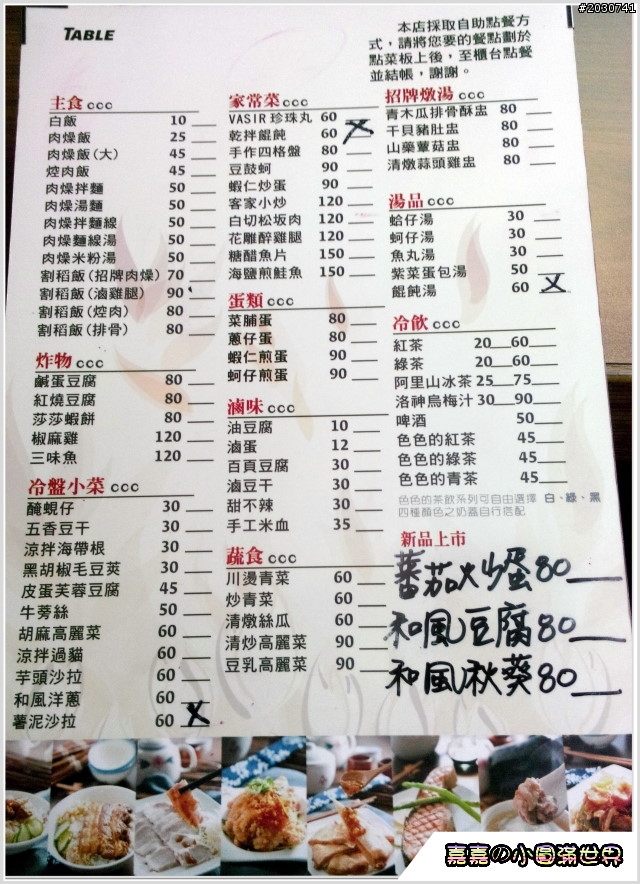 #2030741
TABLE
本店採取自助點餐方
式，請將您要的餐點劃於
點菜板上後，至櫃台點餐
並結帳，謝謝。
主食
白飯 10
肉燥飯 25
肉燥飯(大) 45
焢肉飯 45
肉燥拌麵 50
肉燥湯麵 50
肉燥拌麵線 50
肉燥麵線湯 50
肉燥米粉湯 50
割稻飯(招牌肉燥) 70
割稻飯(滷雞腿) 90
割稻飯(焢肉) 80
割稻飯(排骨) 80
炸物
鹹蛋豆腐 80
紅燒豆腐 80
莎莎蝦餅 80
椒麻雞 120
三味魚 120
冷盤小菜
醃蜆仔 30
五香豆干 30
涼拌海帶根 30
黑胡椒毛豆莢 30
皮蛋芙蓉豆腐 45
牛蒡絲 50
胡麻高麗菜 60
涼拌過貓 60
芋頭沙拉 60
和風洋蔥 60
薯泥沙拉 60
家常菜
VASIR珍珠丸 60
乾拌餛飩 60
手作四格盤 80
豆鼓蚵 90
蝦仁炒蛋 90
客家小炒 120
白切松坂肉 120
花雕醉雞腿 120
糖醋魚片 150
海鹽煎鮭魚 150
蛋類
菜脯蛋 80
蔥仔蛋 80
蝦仁煎蛋 90
蚵仔煎蛋 90
滷味
油豆腐 10
滷蛋 12
百頁豆腐 30
滷豆干 30
甜不辣 30
手工米血 35
蔬食
川燙青菜 60
炒青菜 60
清燉絲瓜 60
清炒高麗菜 90
豆乳高麗菜 90
招牌燉湯
青木瓜排骨酥盅 80
干貝豬肚盅 80
山藥蕈菇盅 80
清燉蒜頭雞盅 80
湯品
蛤仔湯 30
蚵仔湯 30
魚丸湯 30
紫菜蛋包湯 50
餛飩湯 60
冷飲
紅茶 20 60
綠茶 20 60
阿里山冰茶 25 75
洛神烏梅汁 30 90
啤酒 50
色色的紅茶 45
色色的綠茶 45
色色的青茶 45
色色的茶飲系列可自由選擇 白、綠、黑
四種顏色之奶蓋自行搭配
新品上市
蕃茄炒蛋 80
和風豆腐 80
和風秋葵 80
嘉嘉の小圓滿世界